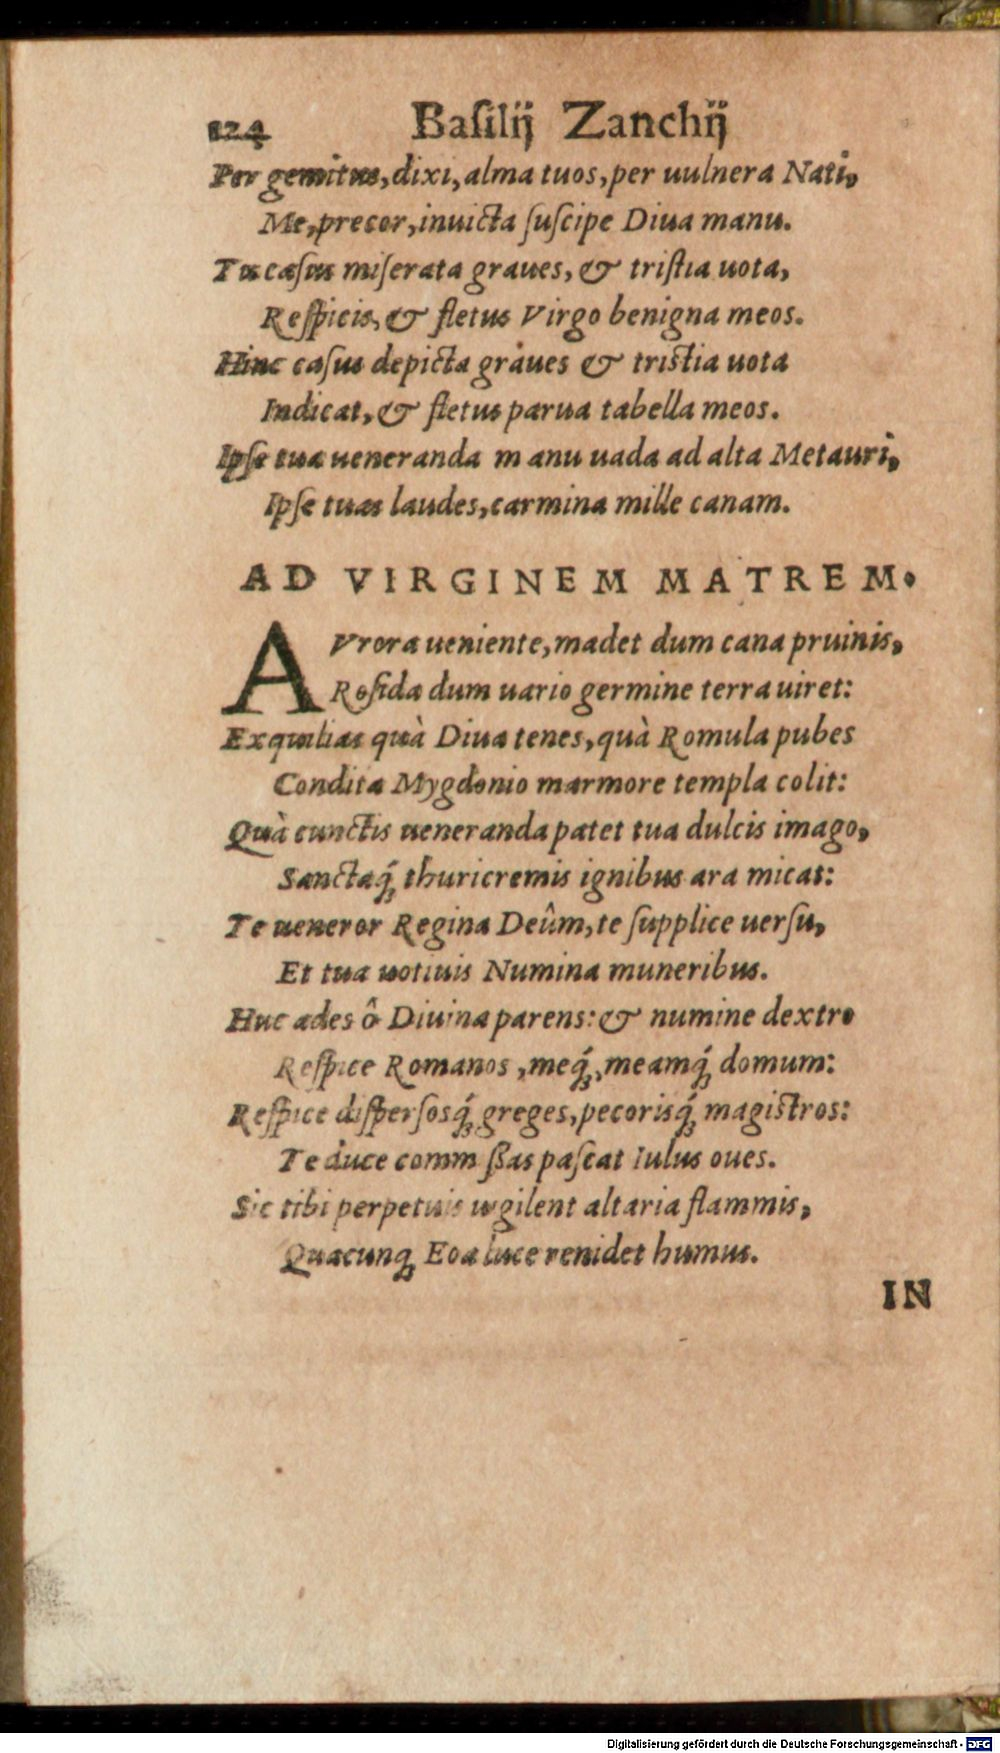 124 Baſilij Zanchij
Per gemitus, dixi, alma tuos, per uulnera Nati,
Me, precor, inuicta ſuſcipe Diua manu.
Tu caſus miſerata graues, & triſtia uota,
Reſpicis, & fletus Virgo benigna meos.
Hinc caſus depicta graues & triſtia uota
Indicat, & fletus parua tabella meos.
Ipſe tua ueneranda manu uada ad alta Metauri,
Ipſe tuas laudes, carmina mille canam.
AD VIRGINEM MATREM.
AVrora ueniente, madet dum cana pruinis,
Roſida dum uario germine terra uiret:
Exquilias quà Diua tenes, quà Romula pubes
Condita Mygdonio marmore templa colit:
Quà cunctis ueneranda patet tua dulcis imago,
Sanctaq́; thuricremis ignibus ara micat:
Te ueneror Regina Deûm, te ſupplice uerſu,
Et tua uotiuis Numina muneribus.
Huc ades ô Diuina parens: & numine dextro
Reſpice Romanos, meq́;, meamq́; domum:
Reſpice diſperſosq́; greges, pecorisq́; magiſtros:
Te duce comm ſſas paſcat Iulus oues.
Sic tibi perpetuis uigilent altaria flammis,
Quacunq; Eoa luce renidet humus.
IN
Digitalisierung gefördert durch die Deutsche Forschungsgemeinschaft - DFG